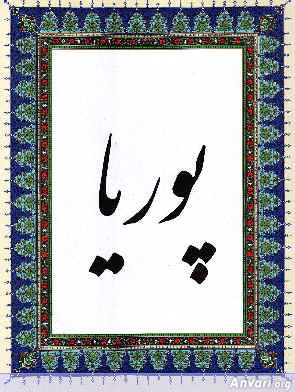 پوریا
Anvari.org